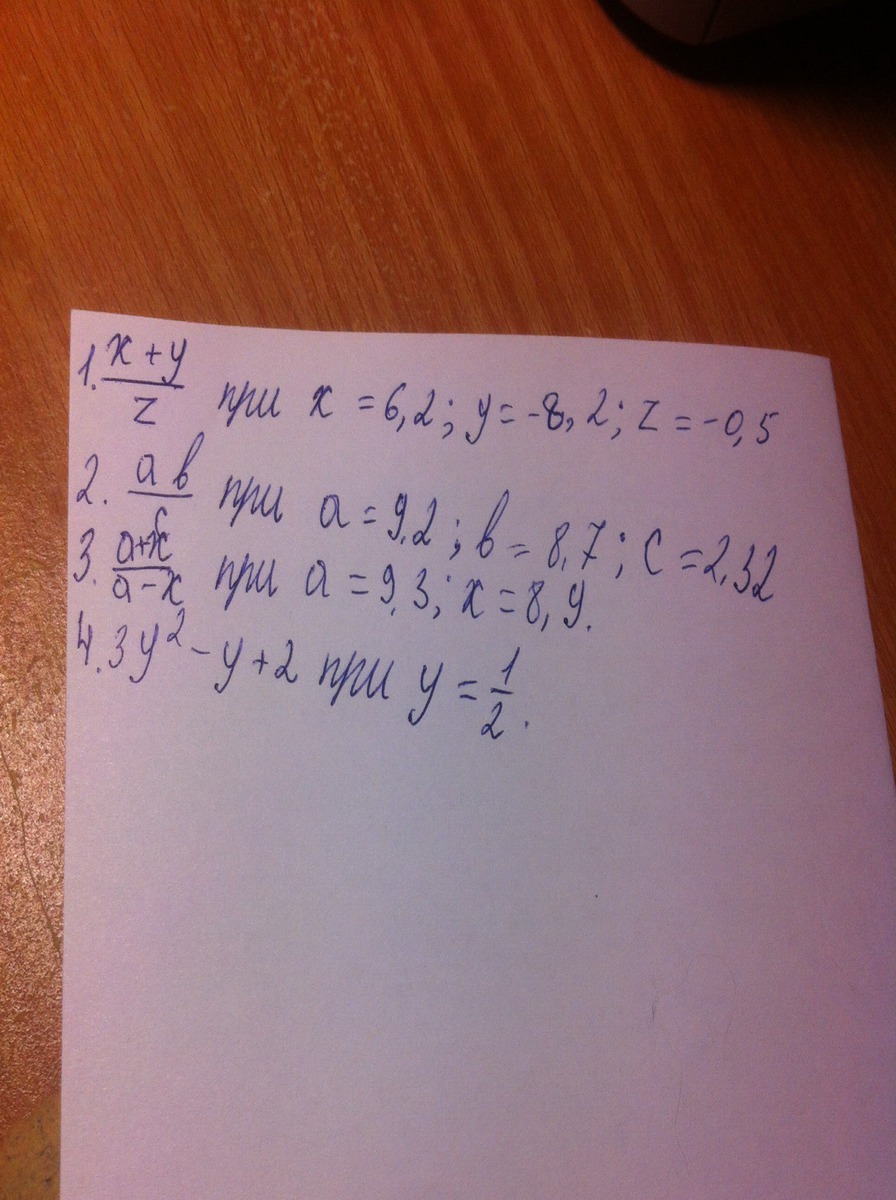 1. x + y / z при x = 6,2; y = -8,2; z = -0,5
2. a b / c при a = 9,2; b = 8,7; c = 2,32
3. a+x / a-x при a = 9,3; x = 8,9.
4. 3y² - y + 2 при y = 1/2.